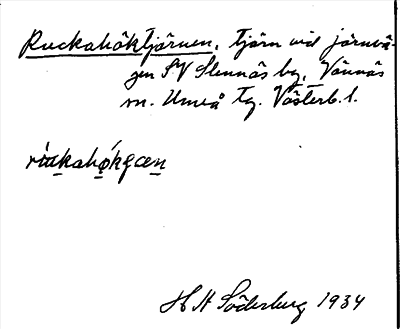 Ruckahöktjärnen, tjärn vid järnvä-
gen SV Stennäs by, Vännäs
sn. Umeå tg. Västerb. l.
H H Söderberg 1934